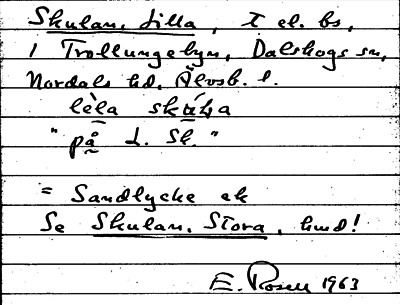 Skulan, Lilla, T el. bs,
i Trollungebyn, Dalskogs sn,
Nordals hd, Älvsb. l.
lèla skúla
"på L. Sk."
= Sandlycke ek
Se Skulan, Stora, hmd!
E. Rosell 1963